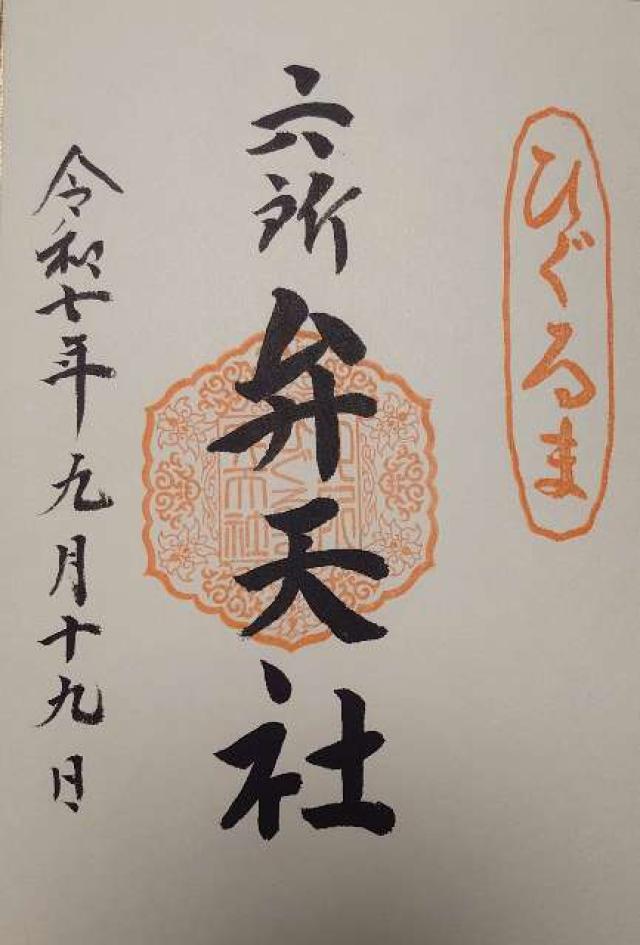 ひぐるま
六所
弁天社
令和七年九月十九日